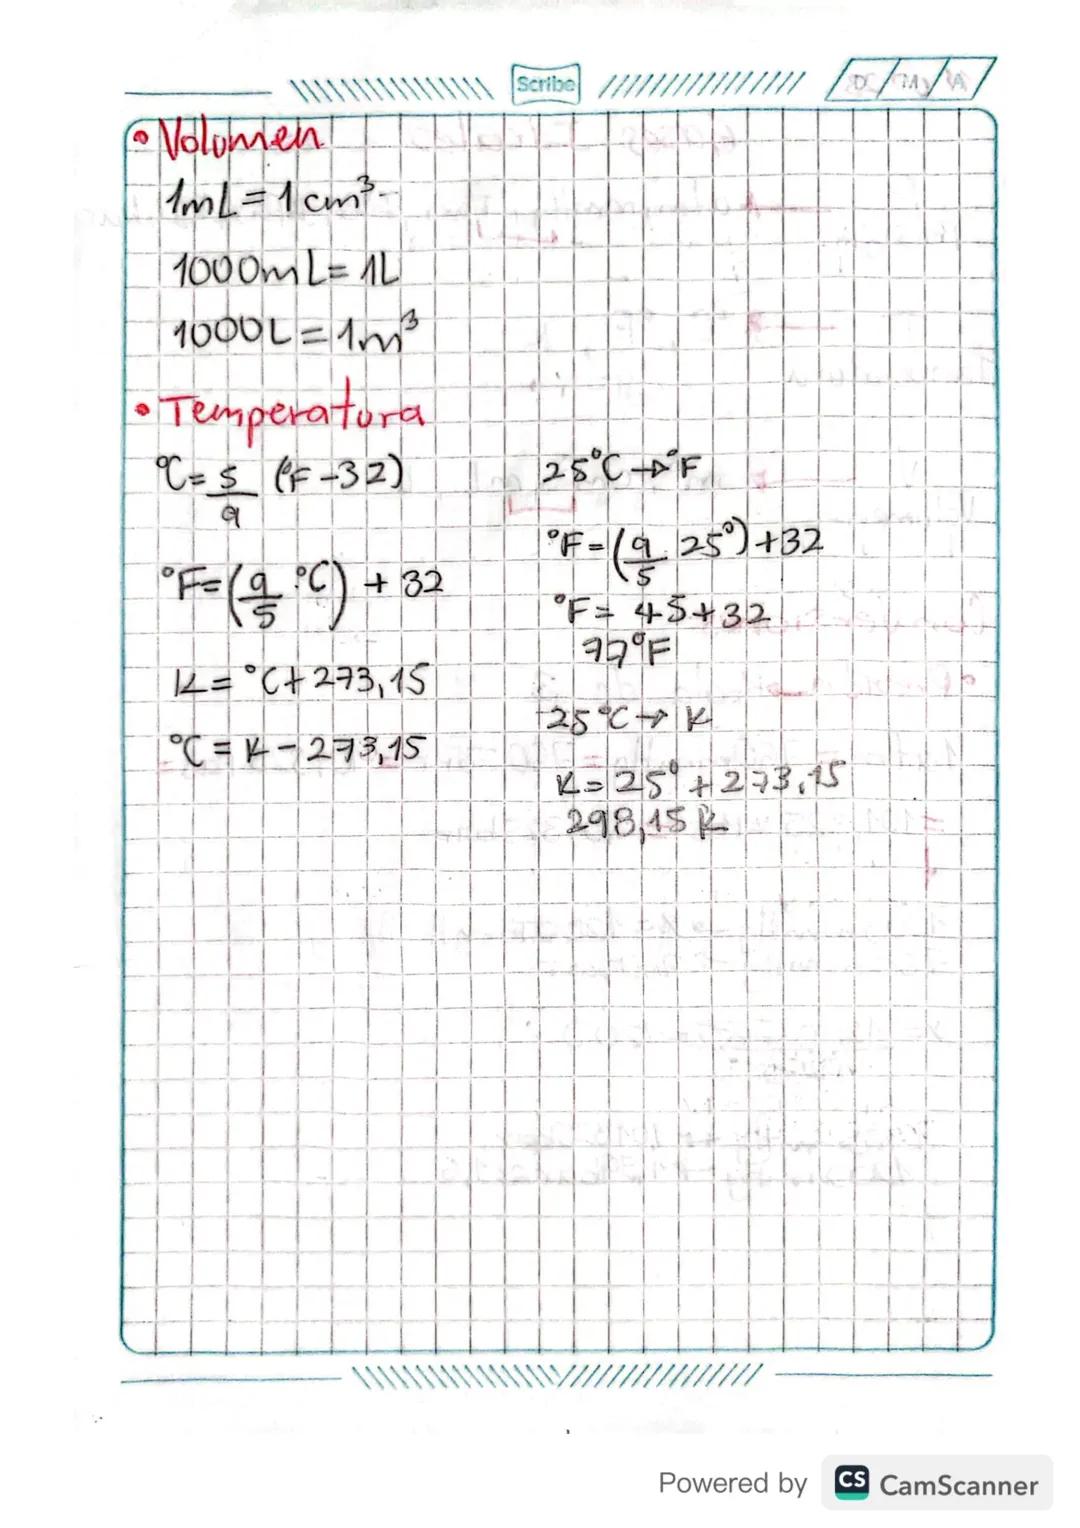 Scribe
• Volumen
1mL = 1 cm³
1000mL = 1L
1000L = 1m³
• Temperatura
°C = 5/9 (°F - 32)
°F = (9/5 · °C) + 32
K = °C + 273,15
°C = K - 273,15
25°C → °F
°F = (9/5 · 25°) + 32
°F = 45 + 32
77°F
25°C → K
K = 25° + 273,15
298,15 K
Powered by CS CamScanner